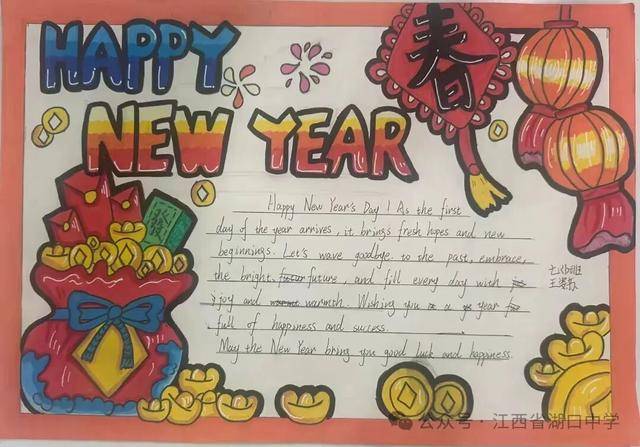 HAPPY
NEW YEAR
春
Happy New Year's Day! As the first
day of the year arrives, it brings fresh hopes and new
beginnings. Let's wave goodbye to the past, embrace,
the bright future, and fill every day with
joy and warmth. Wishing you a year
full of happiness and success.
May the New Year bring you good luck and happiness.
公众号·江西省湖口中学